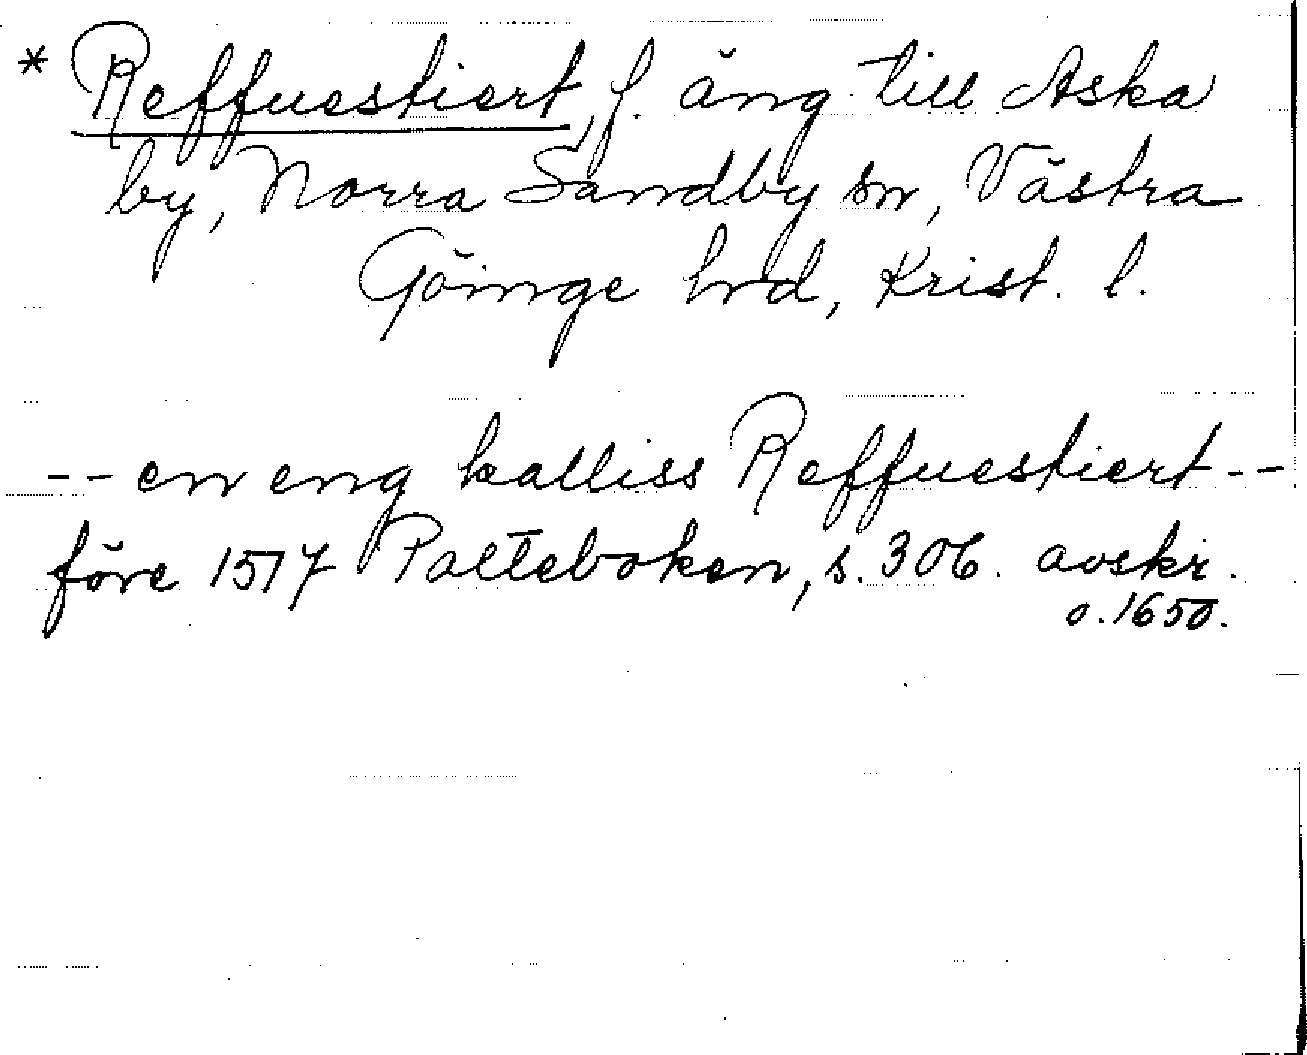 * Reffuestiert, f. äng till Aska
by, Norra Sandby sn, Västra
Göinge hrd, Krist. l.
-- en eng kalliss Reffuestiert --
före 1517 Palteboken, s. 306. avskr.
o. 1650.